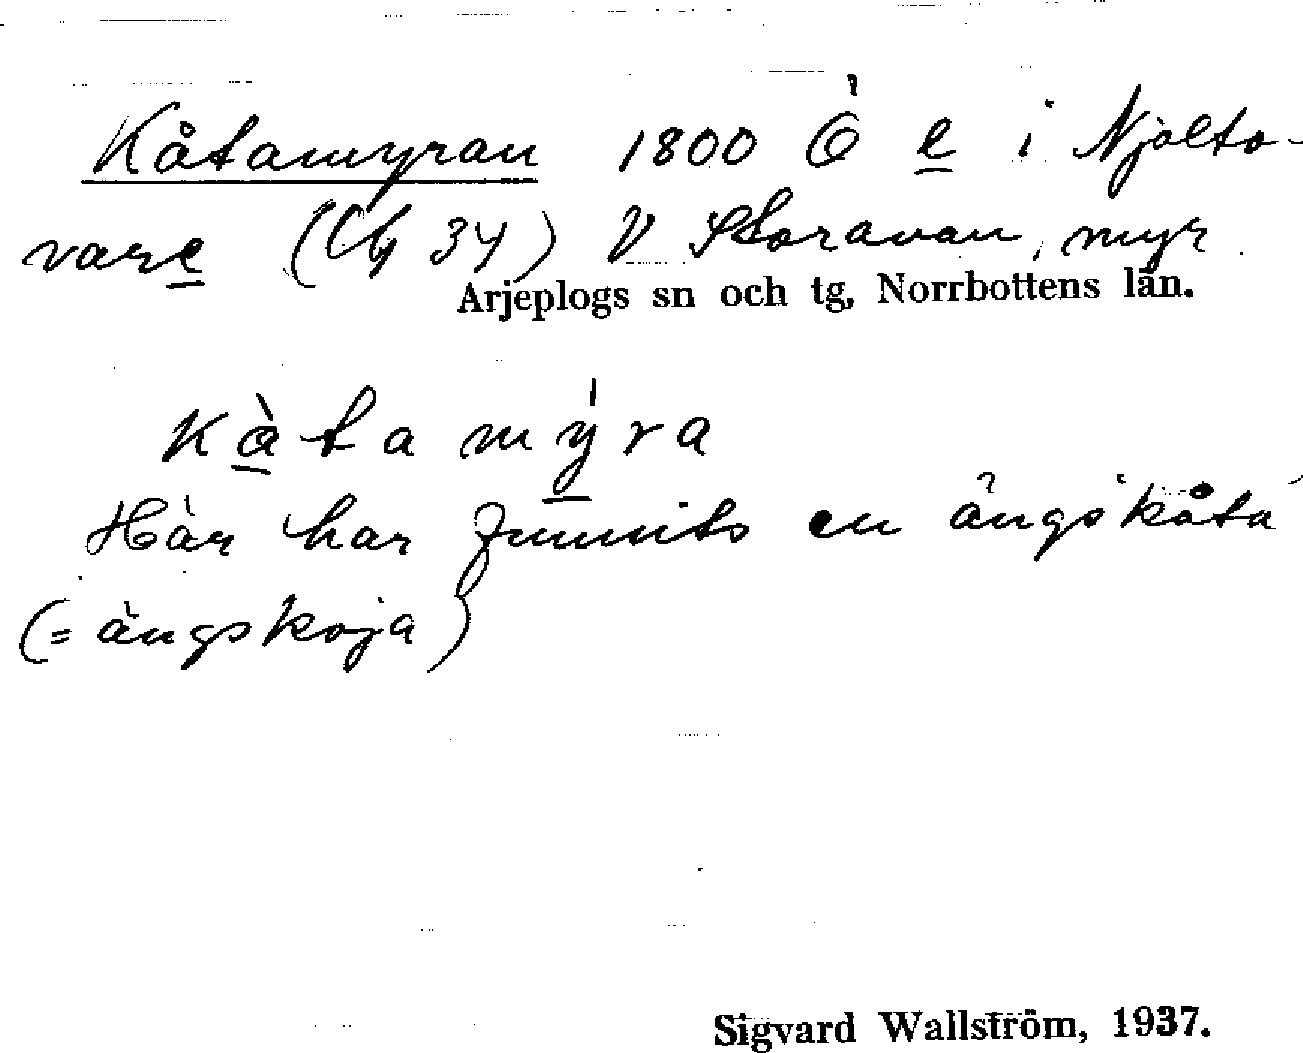 Kåtamyran 1800 Ö e i Njalta-
vare (Cb 34) V Storavan, myr
Arjeplogs sn och tg, Norrbottens län.
Kàtamýra
Här har funnits en ängskåta
(= ängskoja)
Sigvard Wallström, 1937.